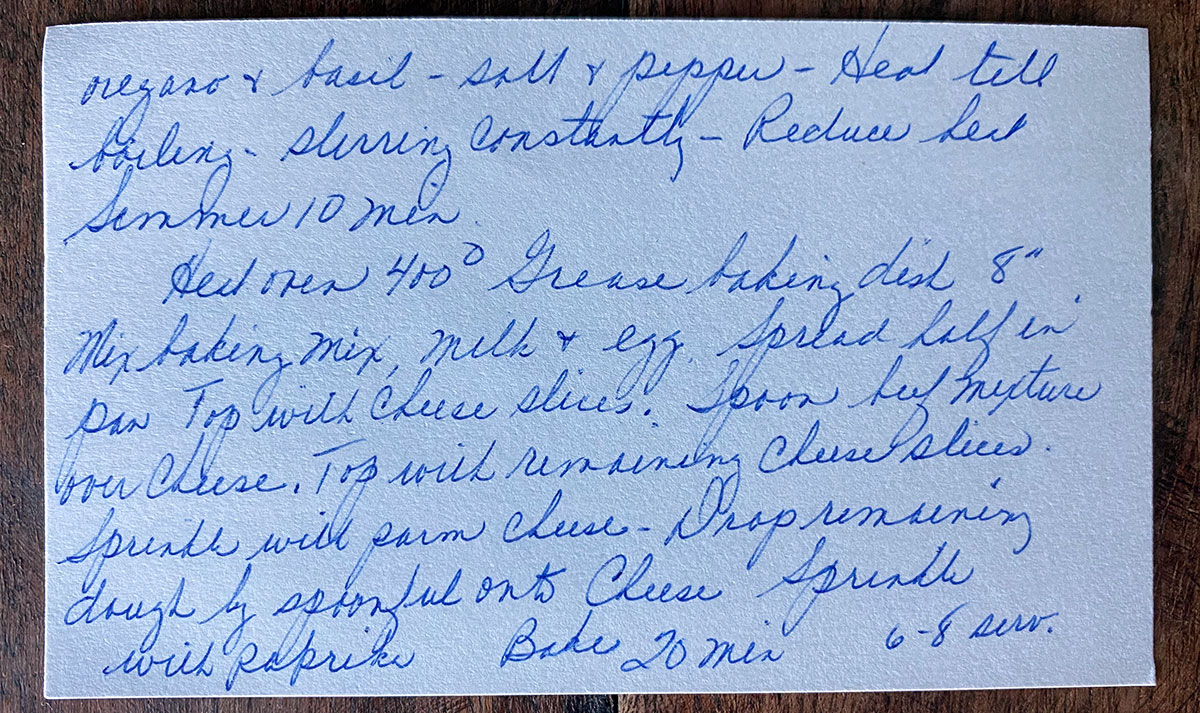 oregano & basil - salt & pepper - Heat till
boiling - stirring constantly - Reduce heat
Simmer 10 min.
Heat oven 400° Grease baking dish 8"
Mix baking mix, milk & egg. Spread half in
pan Top with cheese slices. Spoon beef mixture
over cheese. Top with remaining cheese slices.
Sprinkle with parm cheese - Drop remaining
dough by spoonful onto Cheese Sprinkle
with paprika Bake 20 min 6-8 serv.